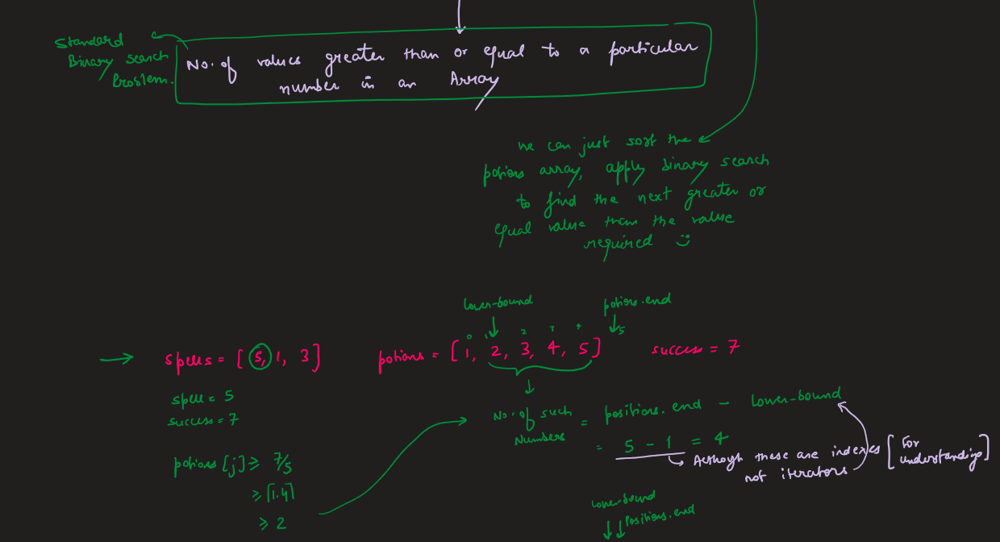 Standard
Binary search
Problem.
No. of values greater than or equal to a particular
number in an Array
we can just sort the
potions array, apply binary search
to find the next greater or
equal value than the value
required
lower-bound
potions.end
0 1 2 3 4 5
spells = [5, 1, 3]
potions = [1, 2, 3, 4, 5]
success = 7
spell = 5
success = 7
potions[j] ≥ 7/5
≥ ⌈1.4⌉
≥ 2
No. of such
Numbers
= positions.end - Lower-bound
= 5 - 1 = 4
Although these are indexes
not iterators
[For
understanding]
Lower-bound
Positions.end